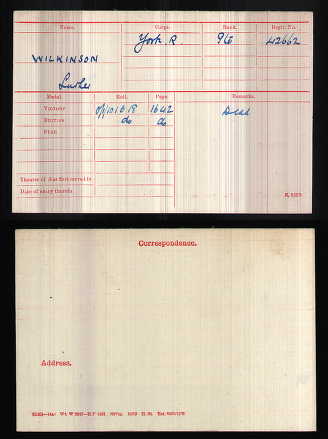 Name. Corps. Rank. Regtl. No.
WILKINSON York. R. Pte 42662
Luther
Medal. Roll. Page. Remarks.
Victory O/1/101 B 19 1642 Dead
British do do
Star
Theatre of War first served in
Date of entry therein
K. 1380
Correspondence.
Address.